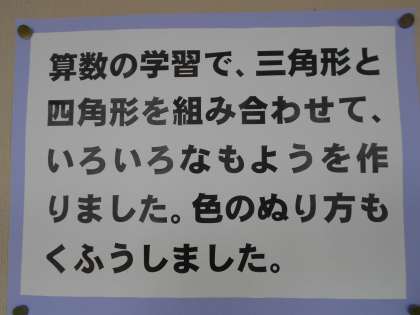 算数の学習で、三角形と
四角形を組み合わせて、
いろいろなもようを作
りました。色のぬり方も
くふうしました。